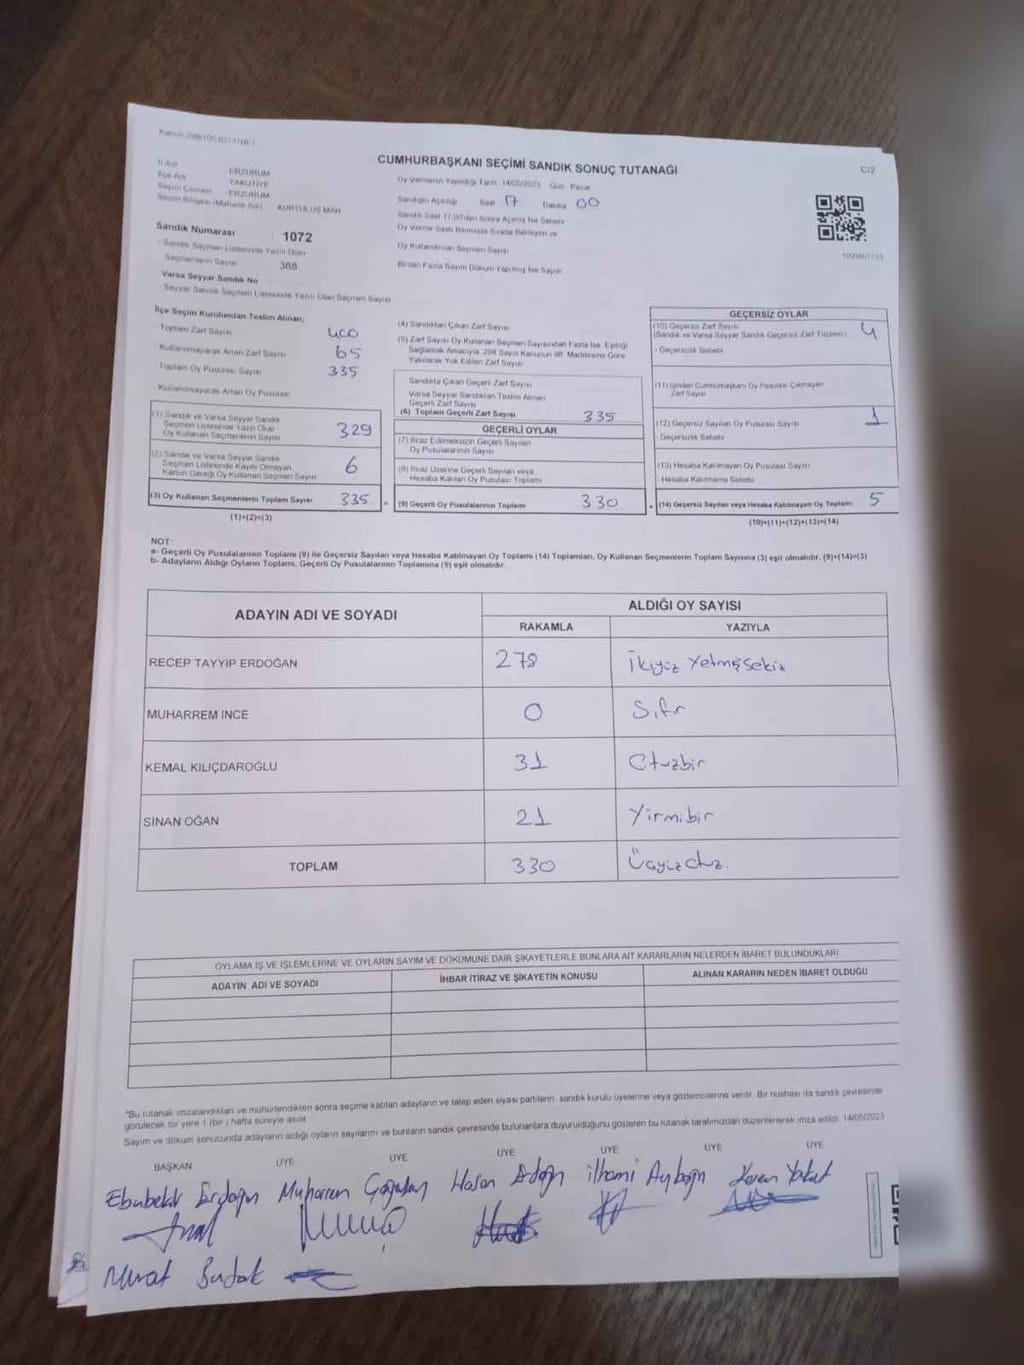 Kanun 298/105
CUMHURBAŞKANI SEÇİMİ SANDIK SONUÇ TUTANAĞI
C/2
İl Adı ERZURUM
İlçe Adı YAKUTİYE
Seçim Çevresi ERZURUM
Seçim Bölgesi (Mahalle Adı) KURTULUŞ MAH
Sandık Numarası : 1072
- Sandık Seçmen Listesinde Yazılı Olan
Seçmenlerin Sayısı 368
Varsa Seyyar Sandık No
- Seyyar Sandık Seçmen Listesinde Yazılı Olan Seçmen Sayısı
Oy Vermenin Yapıldığı Tarih : 14/05/2023 Gün Pazar
Sandığın Açıldığı Saat 17 Dakika 00
Sandık Saat 17.00'den Sonra Açılmış İse Sebebi
Oy Verme Saati Bitiminde Sırada Bekleyen ve
Oy Kullandırılan Seçmen Sayısı
Birden Fazla Sayım Döküm Yapılmış İse Sayısı
İlçe Seçim Kurulundan Teslim Alınan;
- Toplam Zarf Sayısı 400
- Kullanılmayarak Artan Zarf Sayısı 65
- Toplam Oy Pusulası Sayısı 335
- Kullanılmayacak Artan Oy Pusulası
(1) Sandık ve Varsa Seyyar Sandık
Seçmen Listesinde Yazılı Olup
Oy Kullanan Seçmenlerin Sayısı 329
(2) Sandık ve Varsa Seyyar Sandık
Seçmen Listesinde Kayıtlı Olmayan
Kanun Gereği Oy Kullanan Seçmen Sayısı 6
(3) Oy Kullanan Seçmenlerin Toplam Sayısı 335
(1)+(2)=(3)
(4) Sandıktan Çıkan Zarf Sayısı
(5) Zarf Sayısı Oy Kullanan Seçmen Sayısından Fazla İse, Eşitliği
Sağlamak Amacıyla, 298 Sayılı Kanunun 98. Maddesine Göre
Yakılarak Yok Edilen Zarf Sayısı
Sandıkta Çıkan Geçerli Zarf Sayısı
Varsa Seyyar Sandıktan Teslim Alınan
Geçerli Zarf Sayısı
(6) Toplam Geçerli Zarf Sayısı 335
GEÇERLİ OYLAR
(7) İtiraz Edilmeksizin Geçerli Sayılan
Oy Pusulalarının Sayısı
(8) İtiraz Üzerine Geçerli Sayılan veya
Hesaba Katılan Oy Pusulası Toplamı
(9) Geçerli Oy Pusulalarının Toplamı 330
GEÇERSİZ OYLAR
(10) Geçersiz Zarf Sayısı
(Sandık ve Varsa Seyyar Sandık Geçersiz Zarf Toplamı) 4
- Geçersizlik Sebebi
(11) İçinden Cumhurbaşkanı Oy Pusulası Çıkmayan
Zarf Sayısı
(12) Geçersiz Sayılan Oy Pusulası Sayısı 1
Geçersizlik Sebebi
(13) Hesaba Katılmayan Oy Pusulası Sayısı
- Hesaba Katılmama Sebebi
(14) Geçersiz Sayılan veya Hesaba Katılmayan Oy Toplamı 5
(10)+(11)+(12)+(13)=(14)
NOT:
a- Geçerli Oy Pusulalarının Toplamı (9) ile Geçersiz Sayılan veya Hesaba Katılmayan Oy Toplamı (14) Toplamları, Oy Kullanan Seçmenlerin Toplam Sayısına (3) eşit olmalıdır. (9)+(14)=(3)
b- Adayların Aldığı Oyların Toplamı, Geçerli Oy Pusulalarının Toplamına (9) eşit olmalıdır.
ADAYIN ADI VE SOYADI
ALDIĞI OY SAYISI
RAKAMLA YAZIYLA
RECEP TAYYİP ERDOĞAN 278 İkiyüz Yetmişsekiz
MUHARREM İNCE 0 Sıfır
KEMAL KILIÇDAROĞLU 31 Otuzbir
SİNAN OĞAN 21 Yirmibir
TOPLAM 330 Üçyüzotuz.
OYLAMA İŞ VE İŞLEMLERİNE VE OYLARIN SAYIM VE DÖKÜMÜNE DAİR ŞİKAYETLERLE BUNLARA AİT KARARLARIN NELERDEN İBARET BULUNDUKLARI
ADAYIN ADI VE SOYADI İHBAR İTİRAZ VE ŞİKAYETİN KONUSU ALINAN KARARIN NEDEN İBARET OLDUĞU
*Bu tutanak imzalandıktan ve mühürlendikten sonra seçime katılan adayların ve talep eden siyasi partilerin, sandık kurulu üyelerine veya gözlemcilerine verilir. Bir nüshası da sandık çevresinde
görülecek bir yere 1 (bir) hafta süreyle asılır.
Sayım ve döküm sonucunda adayların aldığı oyların sayılarını ve bunların sandık çevresinde bulunanlara duyurulduğunu gösteren bu tutanak tarafımızdan düzenlenerek imza edildi. 14/05/2023
BAŞKAN ÜYE ÜYE ÜYE ÜYE ÜYE ÜYE
Ebubekir Erdoğan Muharrem Hasan Erdoğan İlhami Ayboğa Yakut
Murat Budak